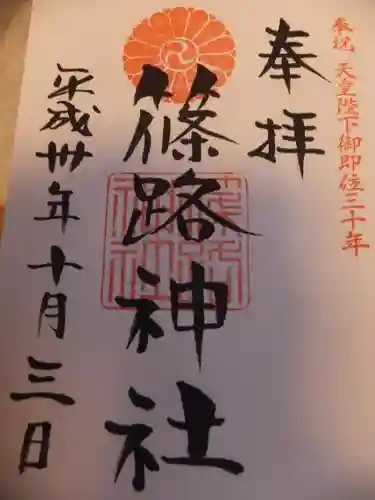 奉祝 天皇陛下御即位三十年
奉拝
篠路神社
平成卅年十月三日
篠路神社